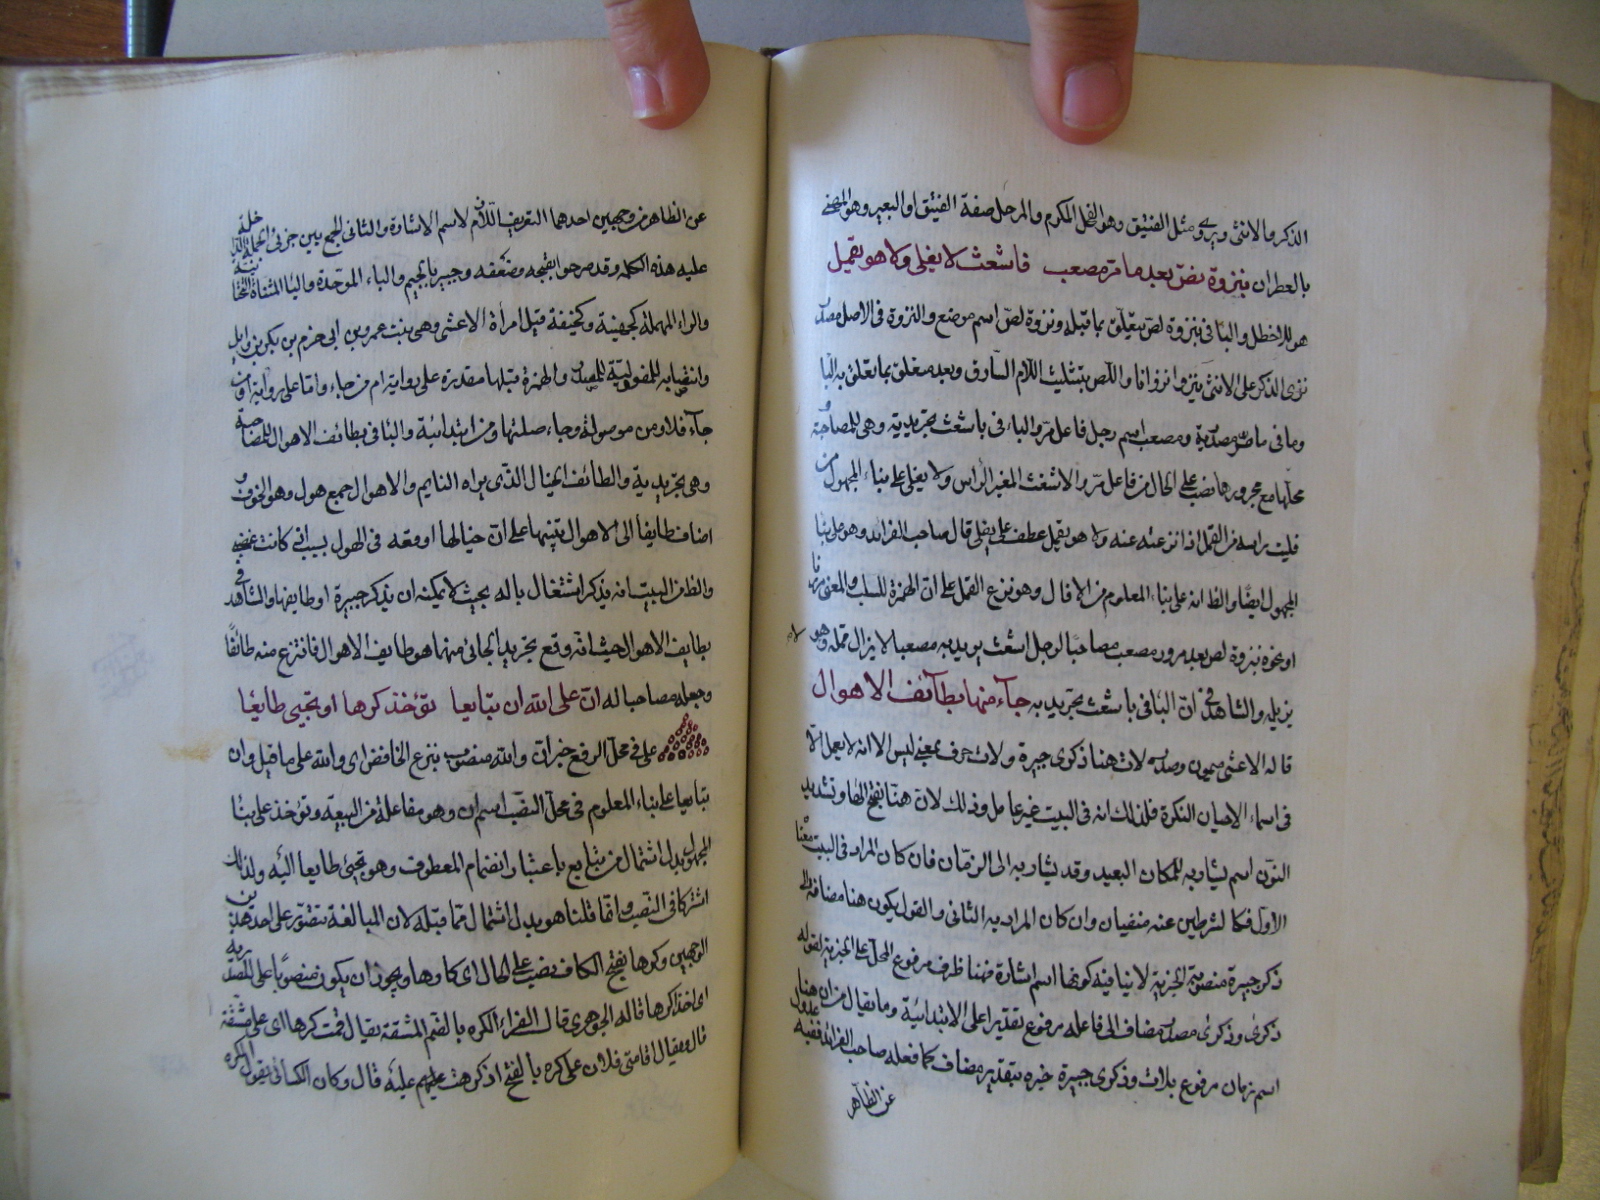 الذكر والانثى ويروى مثل الفنيق وهو الفحل المكرم والمرجل صفة الفنيق او البعير وهو
بالعطران بنزوة لصّ بعد ما مرّ مصعب فاشعث لا يفلى ولا هو يقمل
هو للاخطل والبا فى بنزوة لصّ يتعلّق بما قبله ونزوة لصّ اسم موضع والنزوة فى الاصل مصدر
نزى الذكر على الانثى ينزو انزوانا واللص بتثليث اللام السارق وبعد متعلق بما تعلق به البا
وما فى ما مرّ مصدرية ومصعب اسم رجل فاعل مرّ والباء فى باشعث تجريدية وهى للمصاحبة
محلها مع مجرورها نصب على الحال من فاعل مرّ والاشعث المغبر الرأس ولا يفلى على بناء المجهول من
فليت راسه من القمل اذا نزعته عنه ولا هو يقمل عطف على يفلى قال صاحب الفرائد وهو على بنا
المجهول ايضا والظ انه على بناء المعلوم من الاقال وهو نزع القمل على انّ الهمزة للسلب والمعنى
او نحوه بنزوة لص بعد مرور مصعب مصاحبا لرجل اشعث يريد به مصعبا لا يزال قمله وهو لا
يزيله والشاهد فى انّ البا فى باشعث تجريديه جآء منها بطآئف الاهوال
قاله الاعشى ميمون وصدره لات هنا ذكرى جبيرة ولات حرف بمعنى ليس الا انه لا يعمل الا
فى اسماء الاحيان النكرة فلذلك انه فى البيت غير عامل وذلك لان هنّا بفتح الها وتشديد
النوّن اسم يشار به للمكان البعيد وقد يشار به الى الزمّان فان كان المراد فى البيت معنا
الاول فكلا لشرطين عنه منفيان وان كان المراد به الثانى والقول يكون هنا مضافه الى
ذكر جبيرة منصوبة الخبرية لا ينافيه كونها اسم اشارة فهنا ظرف مرفوع المحل على الخبرية لقوله
ذكرى وذكرى مصدر مضاف الى فاعله مرفوع تقديرا على الابتدائيّة وما يقال من ان هنا
اسم زمان مرفوع بلات وذكرى جبيرة خبره بتقدير مضاف كما فعله صاحب الفرائد ففيه عدول
عن الظآهر
عن الظاهر من وجهين احدهما التعريف اللازم لاسم الاشارة والثانى الجمع بين جزئى الجملة
عليه هذه الكلمه وقد صرحوا بقبحه وضعفه وجبير بالجيم والباء الموحّدة واليا المثناة
والراء المهملة كجهينة وكحنيفة قيل امرأة الاعشى وهى بنت عمرو بن ابى حزم بن بكر بن وايل
وانتصابه للمفعوليّة للمصدر والهمزة قبلها مقدرة على رواية ام من جاء وامّا على رواية او من
جآء فلا ومن موصولة وجاء صلتها ومن ابتدائيّة والبا فى بطائف الاهوال للمصاحبة
وهى تجريدية والطائف الخيال الذى يراه النايم والاهوال جمع هول وهو الخوف و
اضاف طايفا الى الاهوال تنبيها على انّ خيالها اوقعه فى الهول بسبب انى كانت غضبى
والظ ان البيت انه يذكر اشتغال باله بحيث لا يمكنه ان يذكر جبيرة او طايفها والشاهد فى
بطايف الاهوال حيث انّه وقع تجريد الجائى منها هو طايف الاهوال فانتزع منه طائفا
وجعله مصاحبا له انّ علىّ الله ان تبايعا تؤخذ كرها او تجيى طايعًا
على فى محل الرفع خبر انّ والله منصوب بنزع الخافض اى والله على ما قيل وان
تبايعا على بناء المعلوم فى محلّ النصب اسم ان وهو مفاعلة من البيعه وتؤخذ على بنا
المجهول بدل اشتمال من تبايع باعتبار انضمام المعطوف وهو تجيئى طايعا اليه ولذلك
اشتركا فى النصب وانّما قلنا هو بدل اشتمال ممّا قبله لان المبالغة تتصوّر على احد هذين
الوجهين وكرها بفتح الكاف نصب على الحال اى كارها ويجوز ان يكون منصوبا على المصدرية
اى اخذا كرها قاله الجوهرى قال الفراء الكره بالضّم المشقة يقال قمت كرها اى على مشقة
قال ويقال اقامنى فلان على كره بالفتح اذ كرهت عليهم عليه قال وكان الكسائى يقول الكره